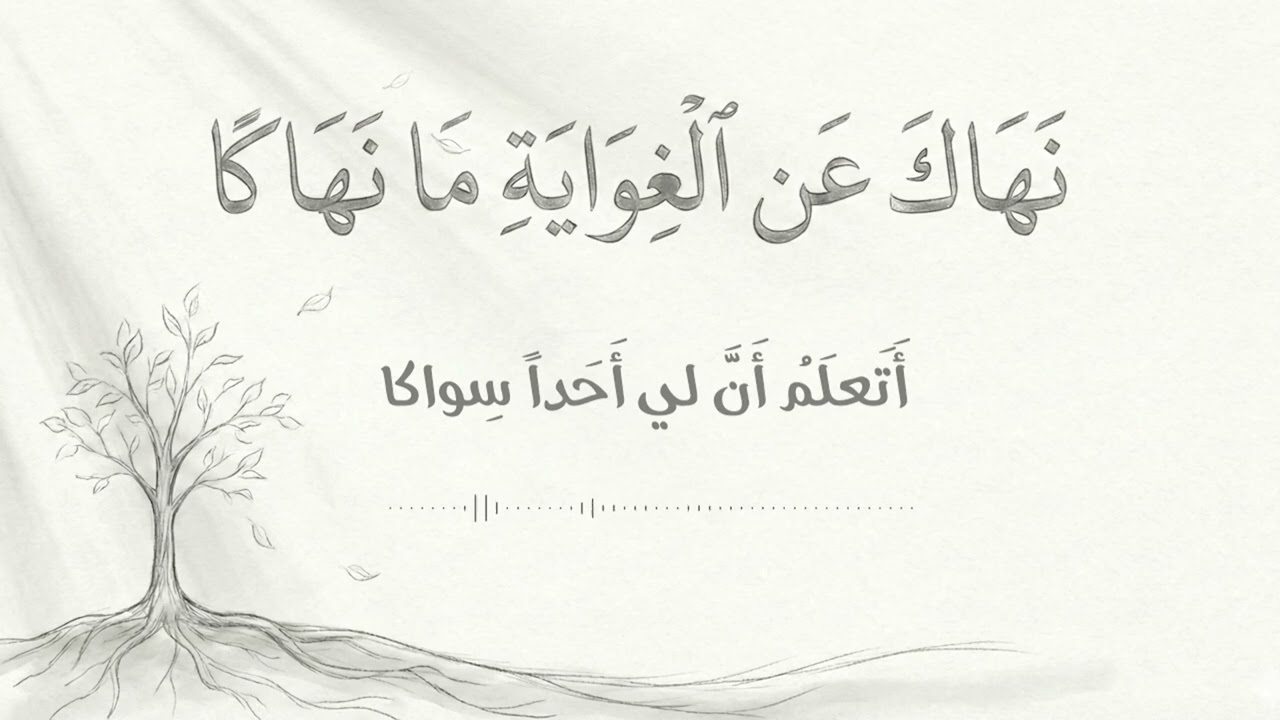 نَهَاكَ عَن ٱلْغِوَايَةِ مَا نَهَاكًا
أَتَعلَمُ أَنَّ لي أَحَداً سِواكا